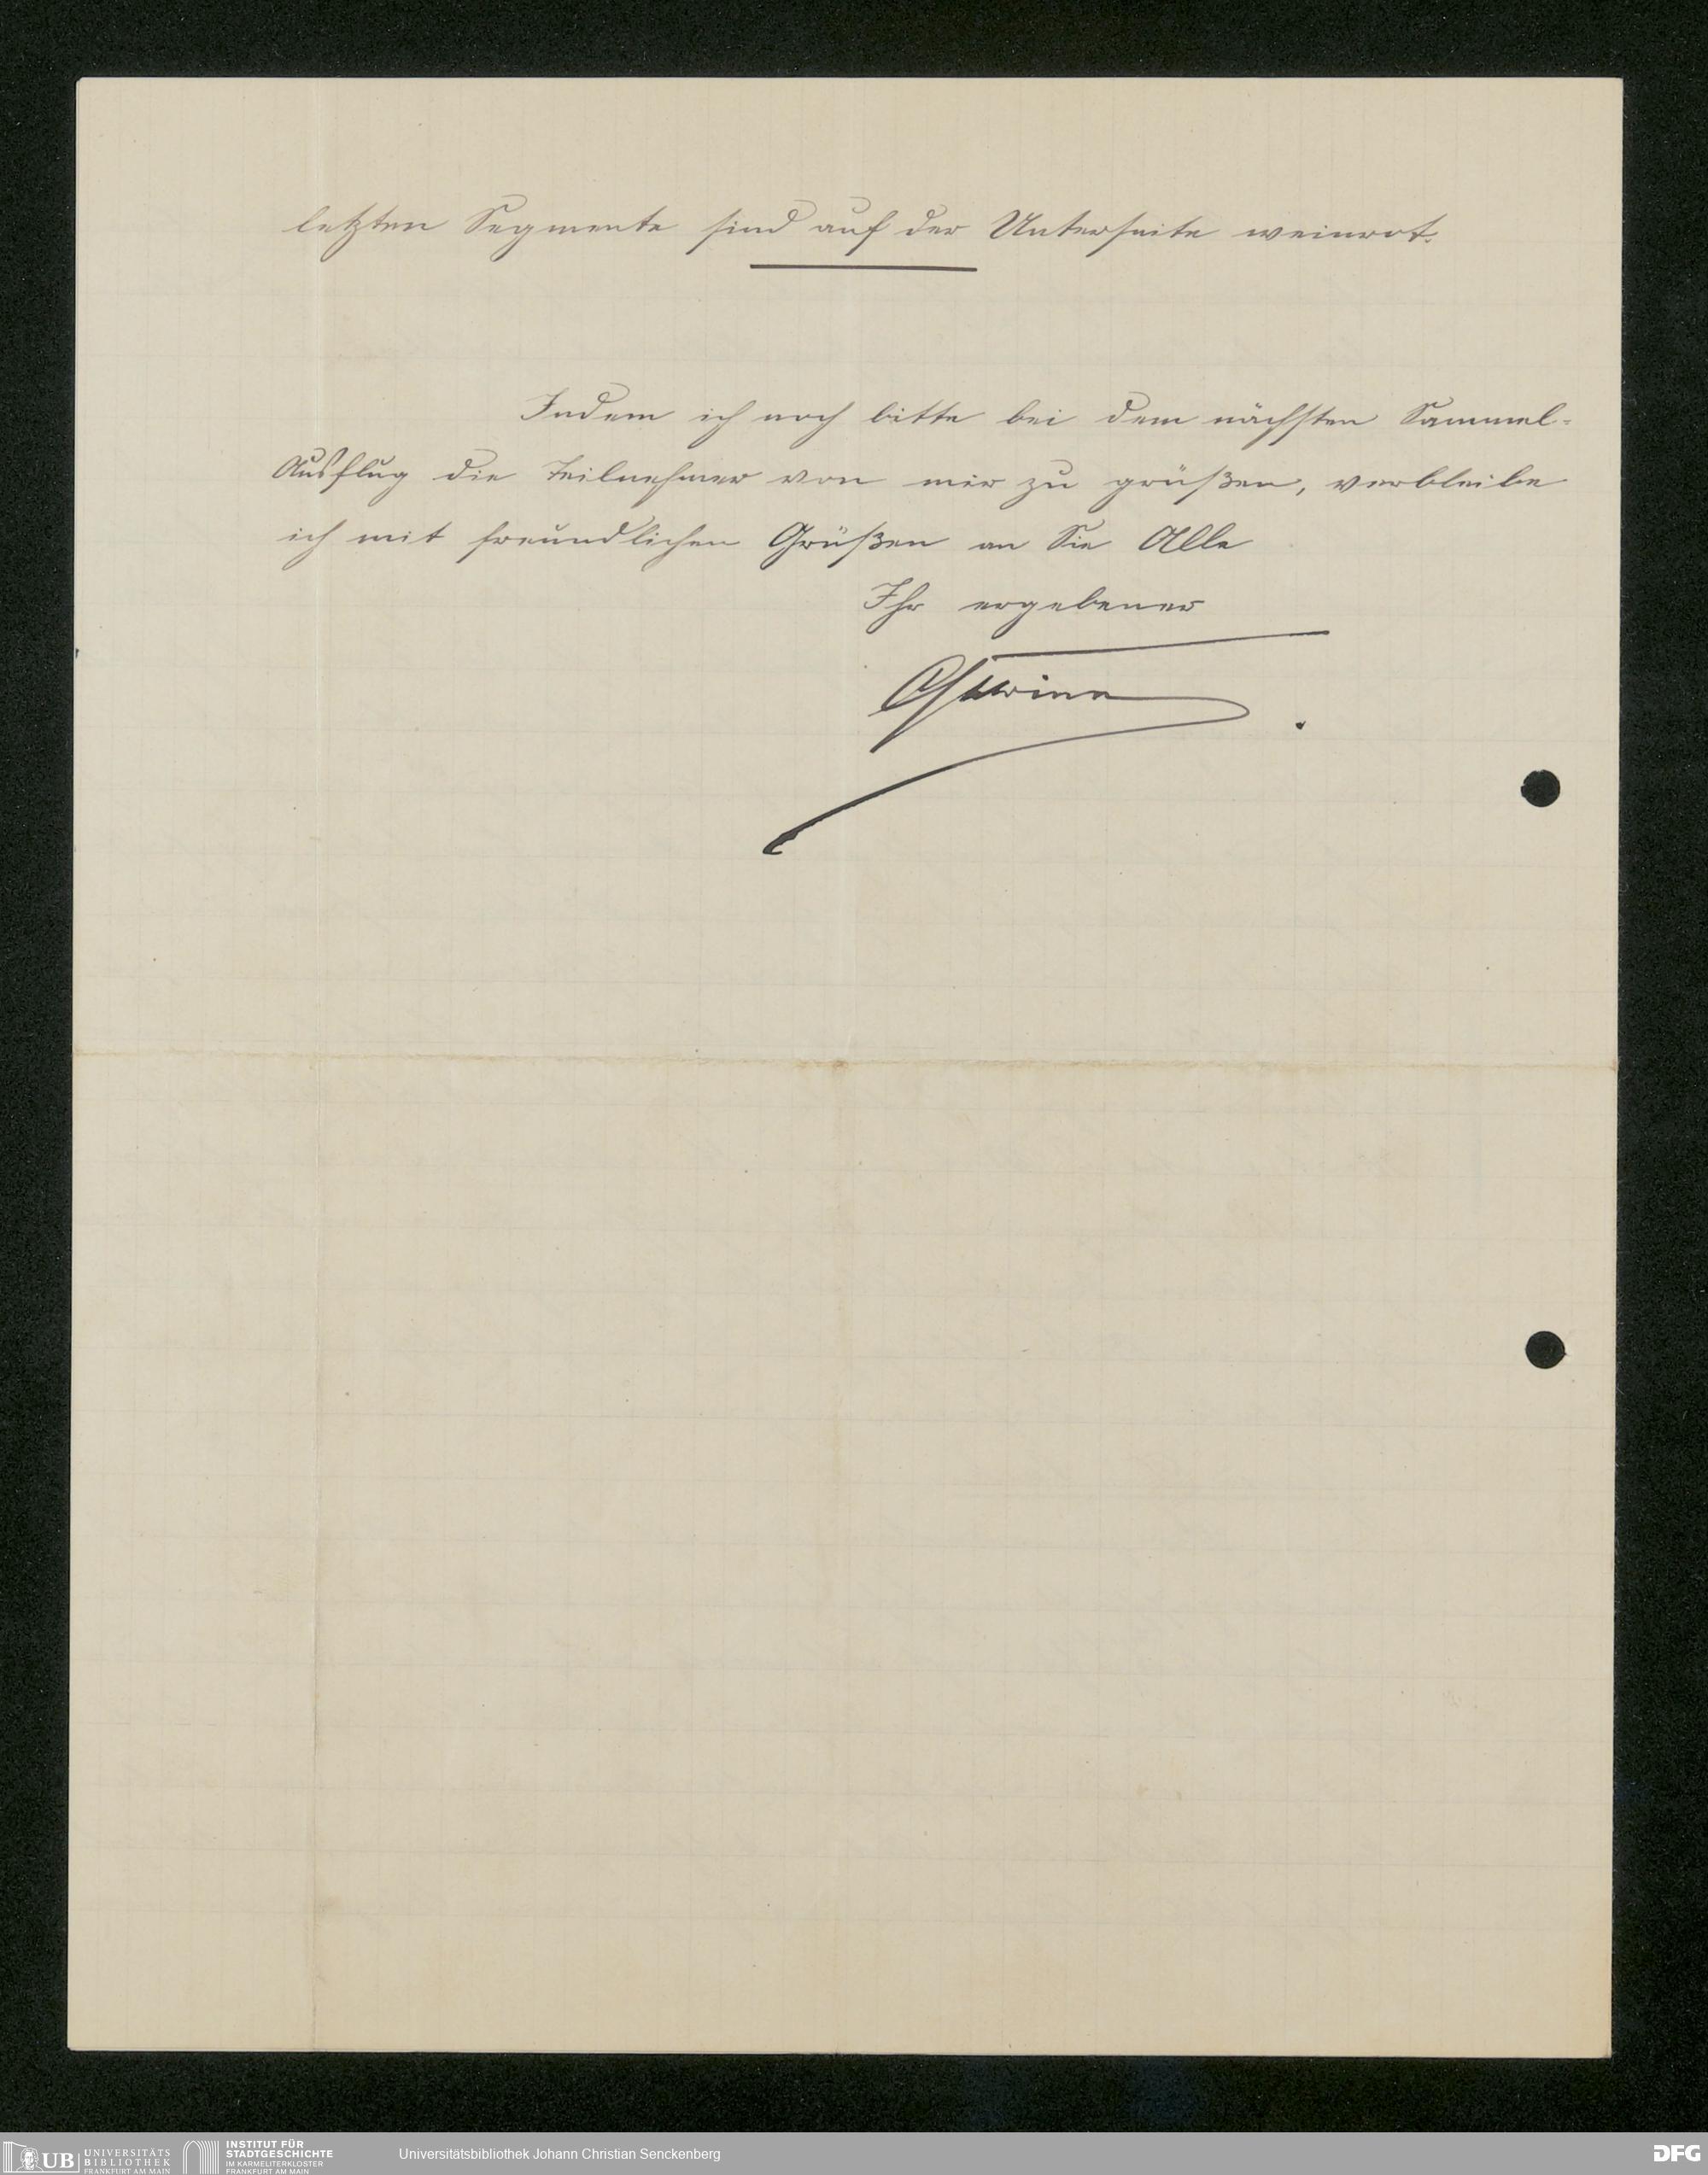 letzten Segmente sind auf der Unterseite weinrot.
Indem ich noch bitte bei dem nächsten Sammel-
Ausflug die Teilnehmer von mir zu grüßen, verbleibe
ich mit freundlichen Grüßen an Sie Alle
Ihr ergebener
UB
UNIVERSITÄTS
BIBLIOTHEK
FRANKFURT AM MAIN
INSTITUT FÜR
STADTGESCHICHTE
IM KARMELITERKLOSTER
FRANKFURT AM MAIN
Universitätsbibliothek Johann Christian Senckenberg
DFG